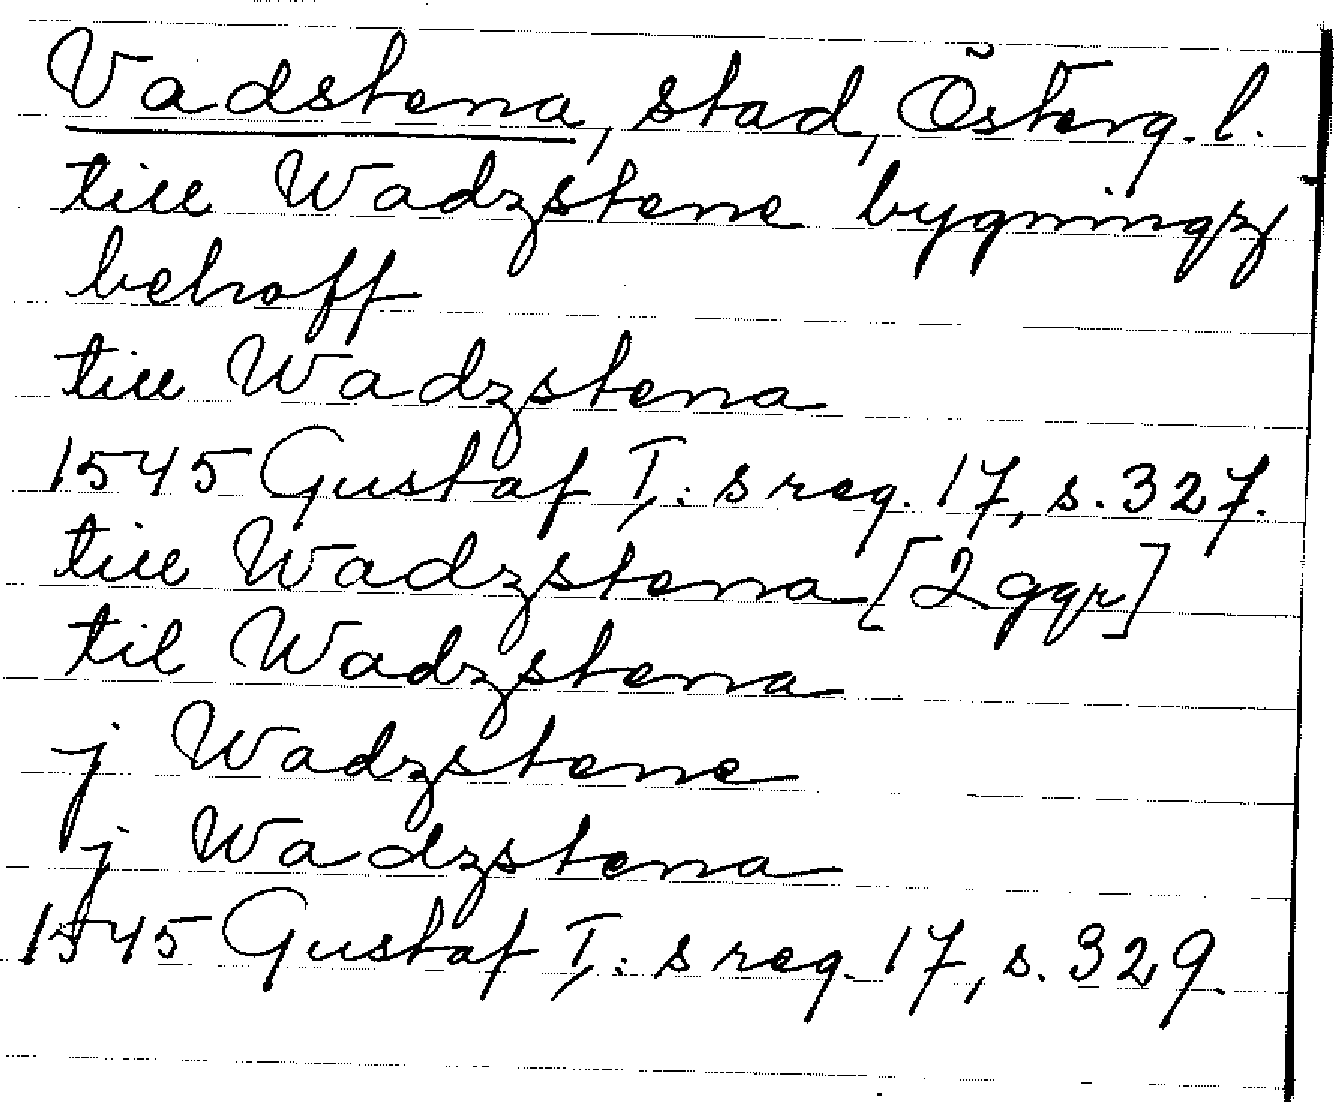 Vadstena, stad, Österg. l.
till Wadzstene bygningz
behoff
till Wadzstena
1545 Gustaf I:s reg. 17, s. 327.
till Wadzstena [2 ggr]
til Wadzstena
j Wadzstene
j Wadzstena
1545 Gustaf I:s reg. 17, s. 329.